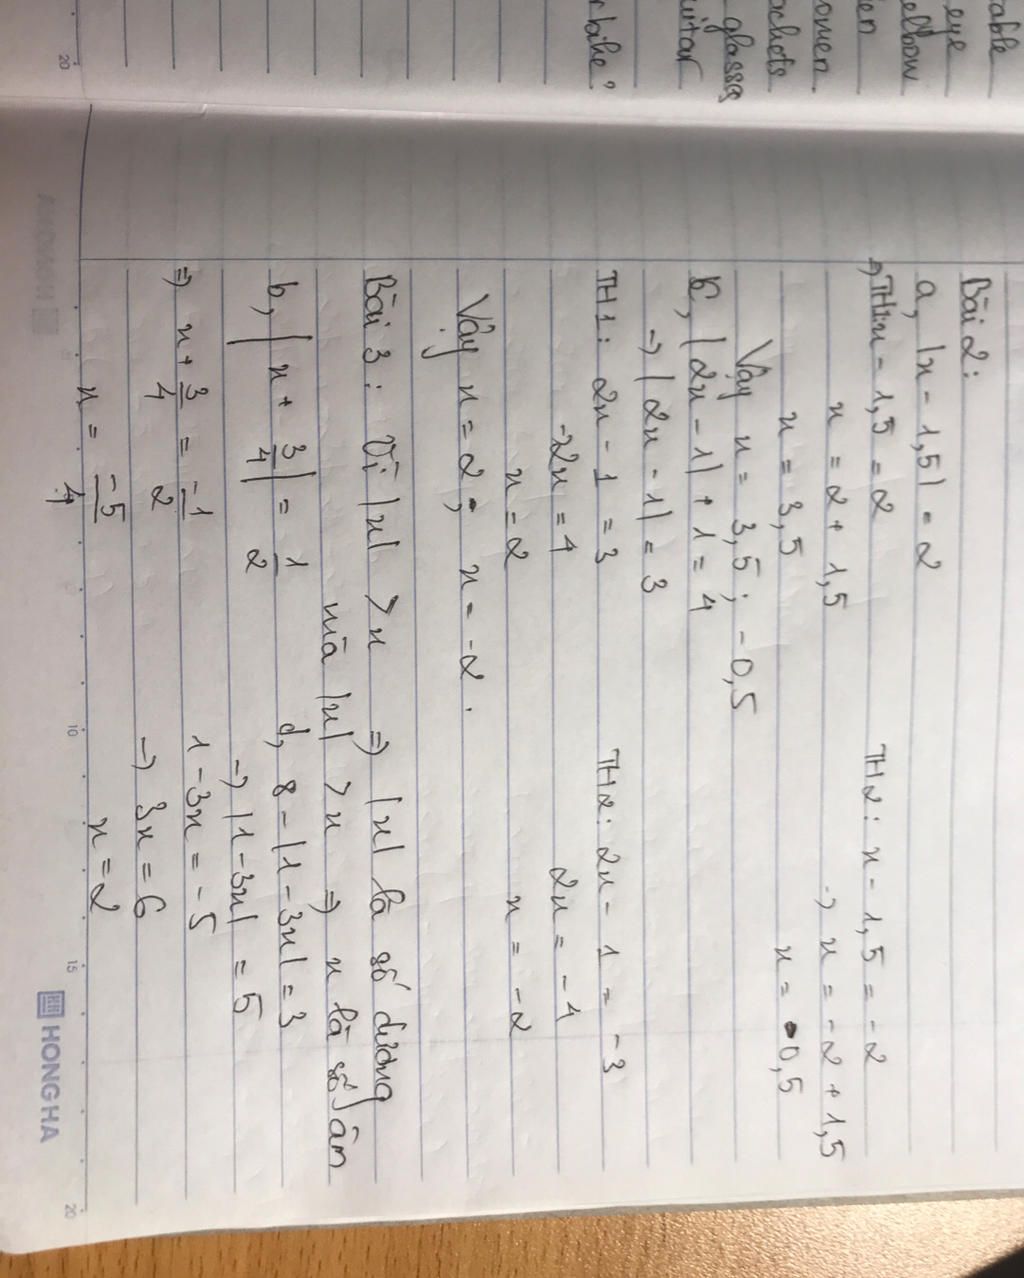 table
eye
elbow
en
omen
achets
glasses
uitar
rbike?
Bài 2:
a, |x - 1,5| = 2
=> TH1: x - 1,5 = 2
TH2: x - 1,5 = -2
x = 2 + 1,5
-> x = -2 + 1,5
x = 3,5
x = -0,5
Vậy x = 3,5; -0,5
b, |2x - 1| + 1 = 4
-> |2x - 1| = 3
TH1: 2x - 1 = 3
TH2: 2x - 1 = -3
-22x = 4
2x = -4
x = 2
x = -2
Vậy x = 2; x = -2.
Bài 3: Vì |x| > x => |x| là số dương
mà |x| > x => x là số âm
b, |x + 3/4| = 1/2
d, 8 - |1 - 3x| = 3
-> |1 - 3x| = 5
=> x + 3/4 = -1/2
1 - 3x = -5
-> 3x = 6
x = -5/4
x = 2
20
10
15
20
HONG HA